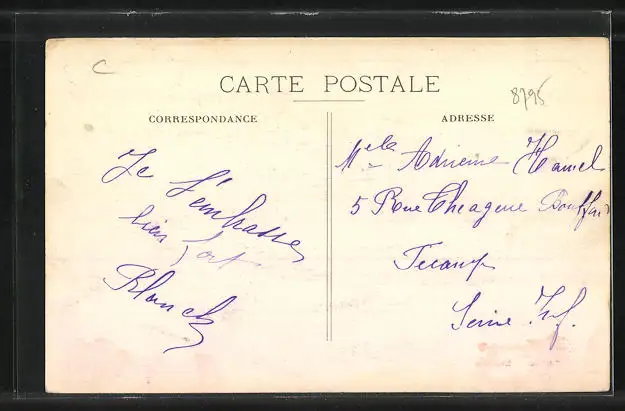 C
CARTE POSTALE
8795
CORRESPONDANCE
Je t'embrasse
bien fort
Blanche
ADRESSE
Melle Adrienne Hamel
5 Rue Theagene Bouffart
Fecamp
Seine Inf.